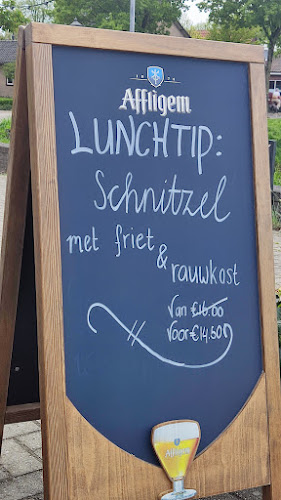 Affligem
LUNCHTIP:
Schnitzel
met friet
& rauwkost
Van €16.00
Voor €14.50
Affligem